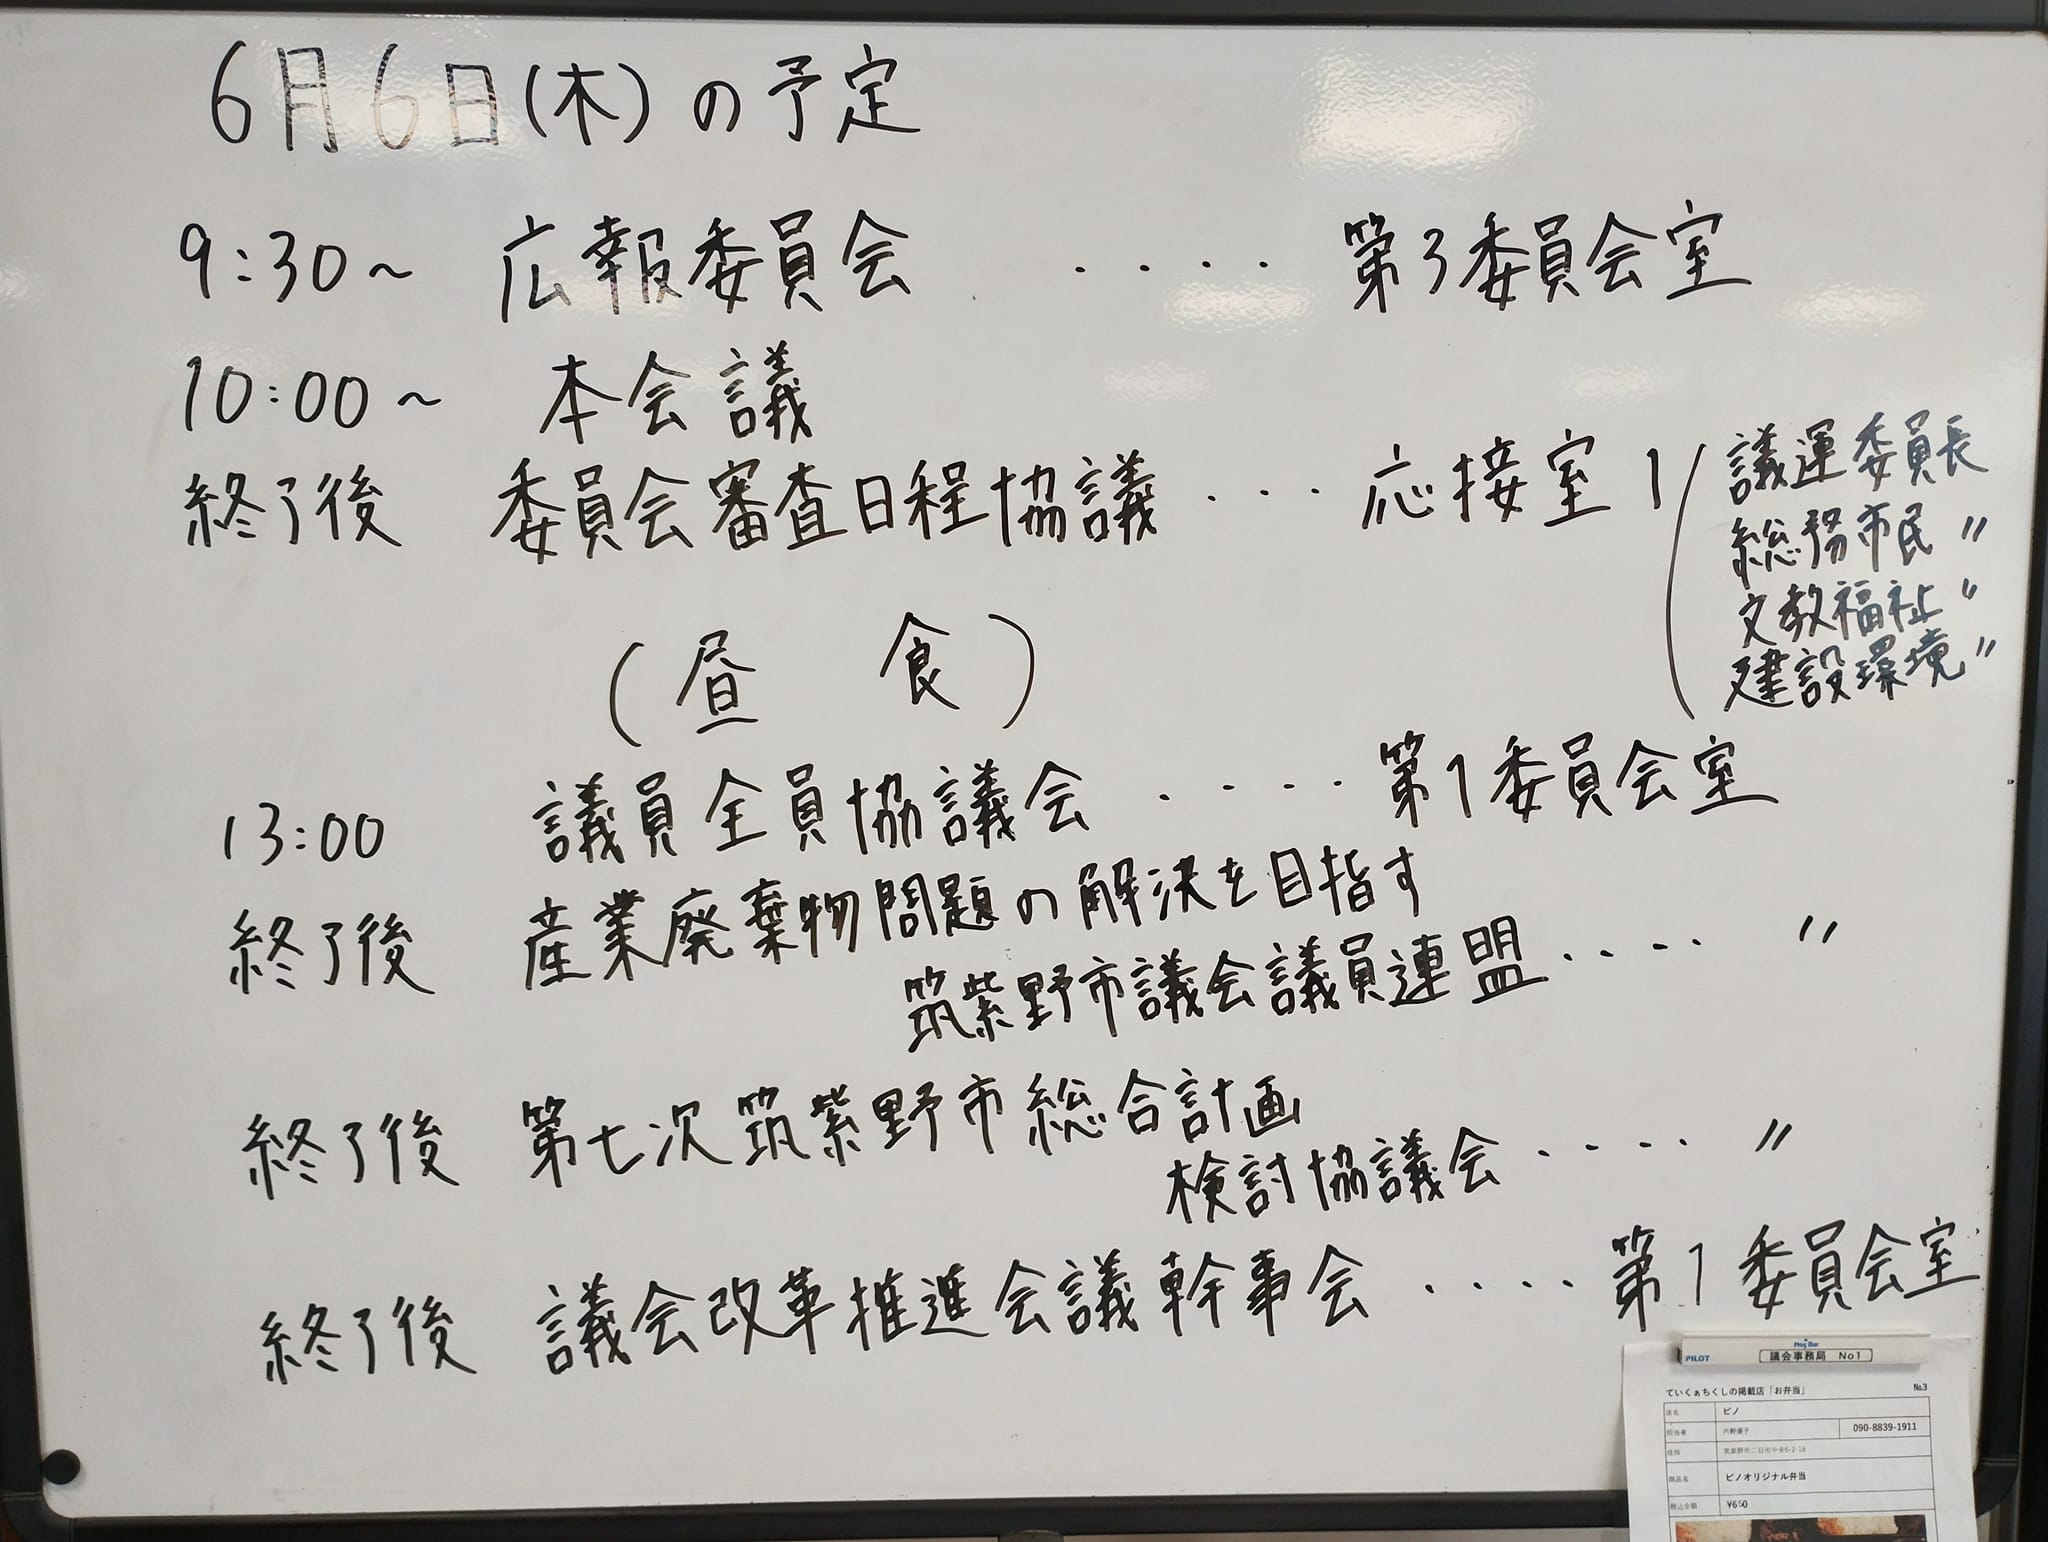 6月6日(木)の予定
9:30~ 広報委員会 ・・・・ 第3委員会室
10:00~ 本会議
終了後 委員会審査日程協議 ・・・ 応接室1
議運委員長
総務市民 〃
文教福祉 〃
建設環境 〃
(昼 食)
13:00 議員全員協議会 ・・・・ 第1委員会室
終了後 産業廃棄物問題の解決を目指す
筑紫野市議会議員連盟 ・・・・ 〃
終了後 第七次筑紫野市総合計画
検討協議会 ・・・・ 〃
終了後 議会改革推進会議幹事会 ・・・・ 第1委員会室
Mag Bar
PILOT 議会事務局 No1
ていくぁちくしの掲載店「お弁当」 №3
店名 ピノ
担当者 内野優子 090-8839-1911
住所 筑紫野市二日市中央6-2-18
商品名 ピノオリジナル弁当
税込金額 ¥660